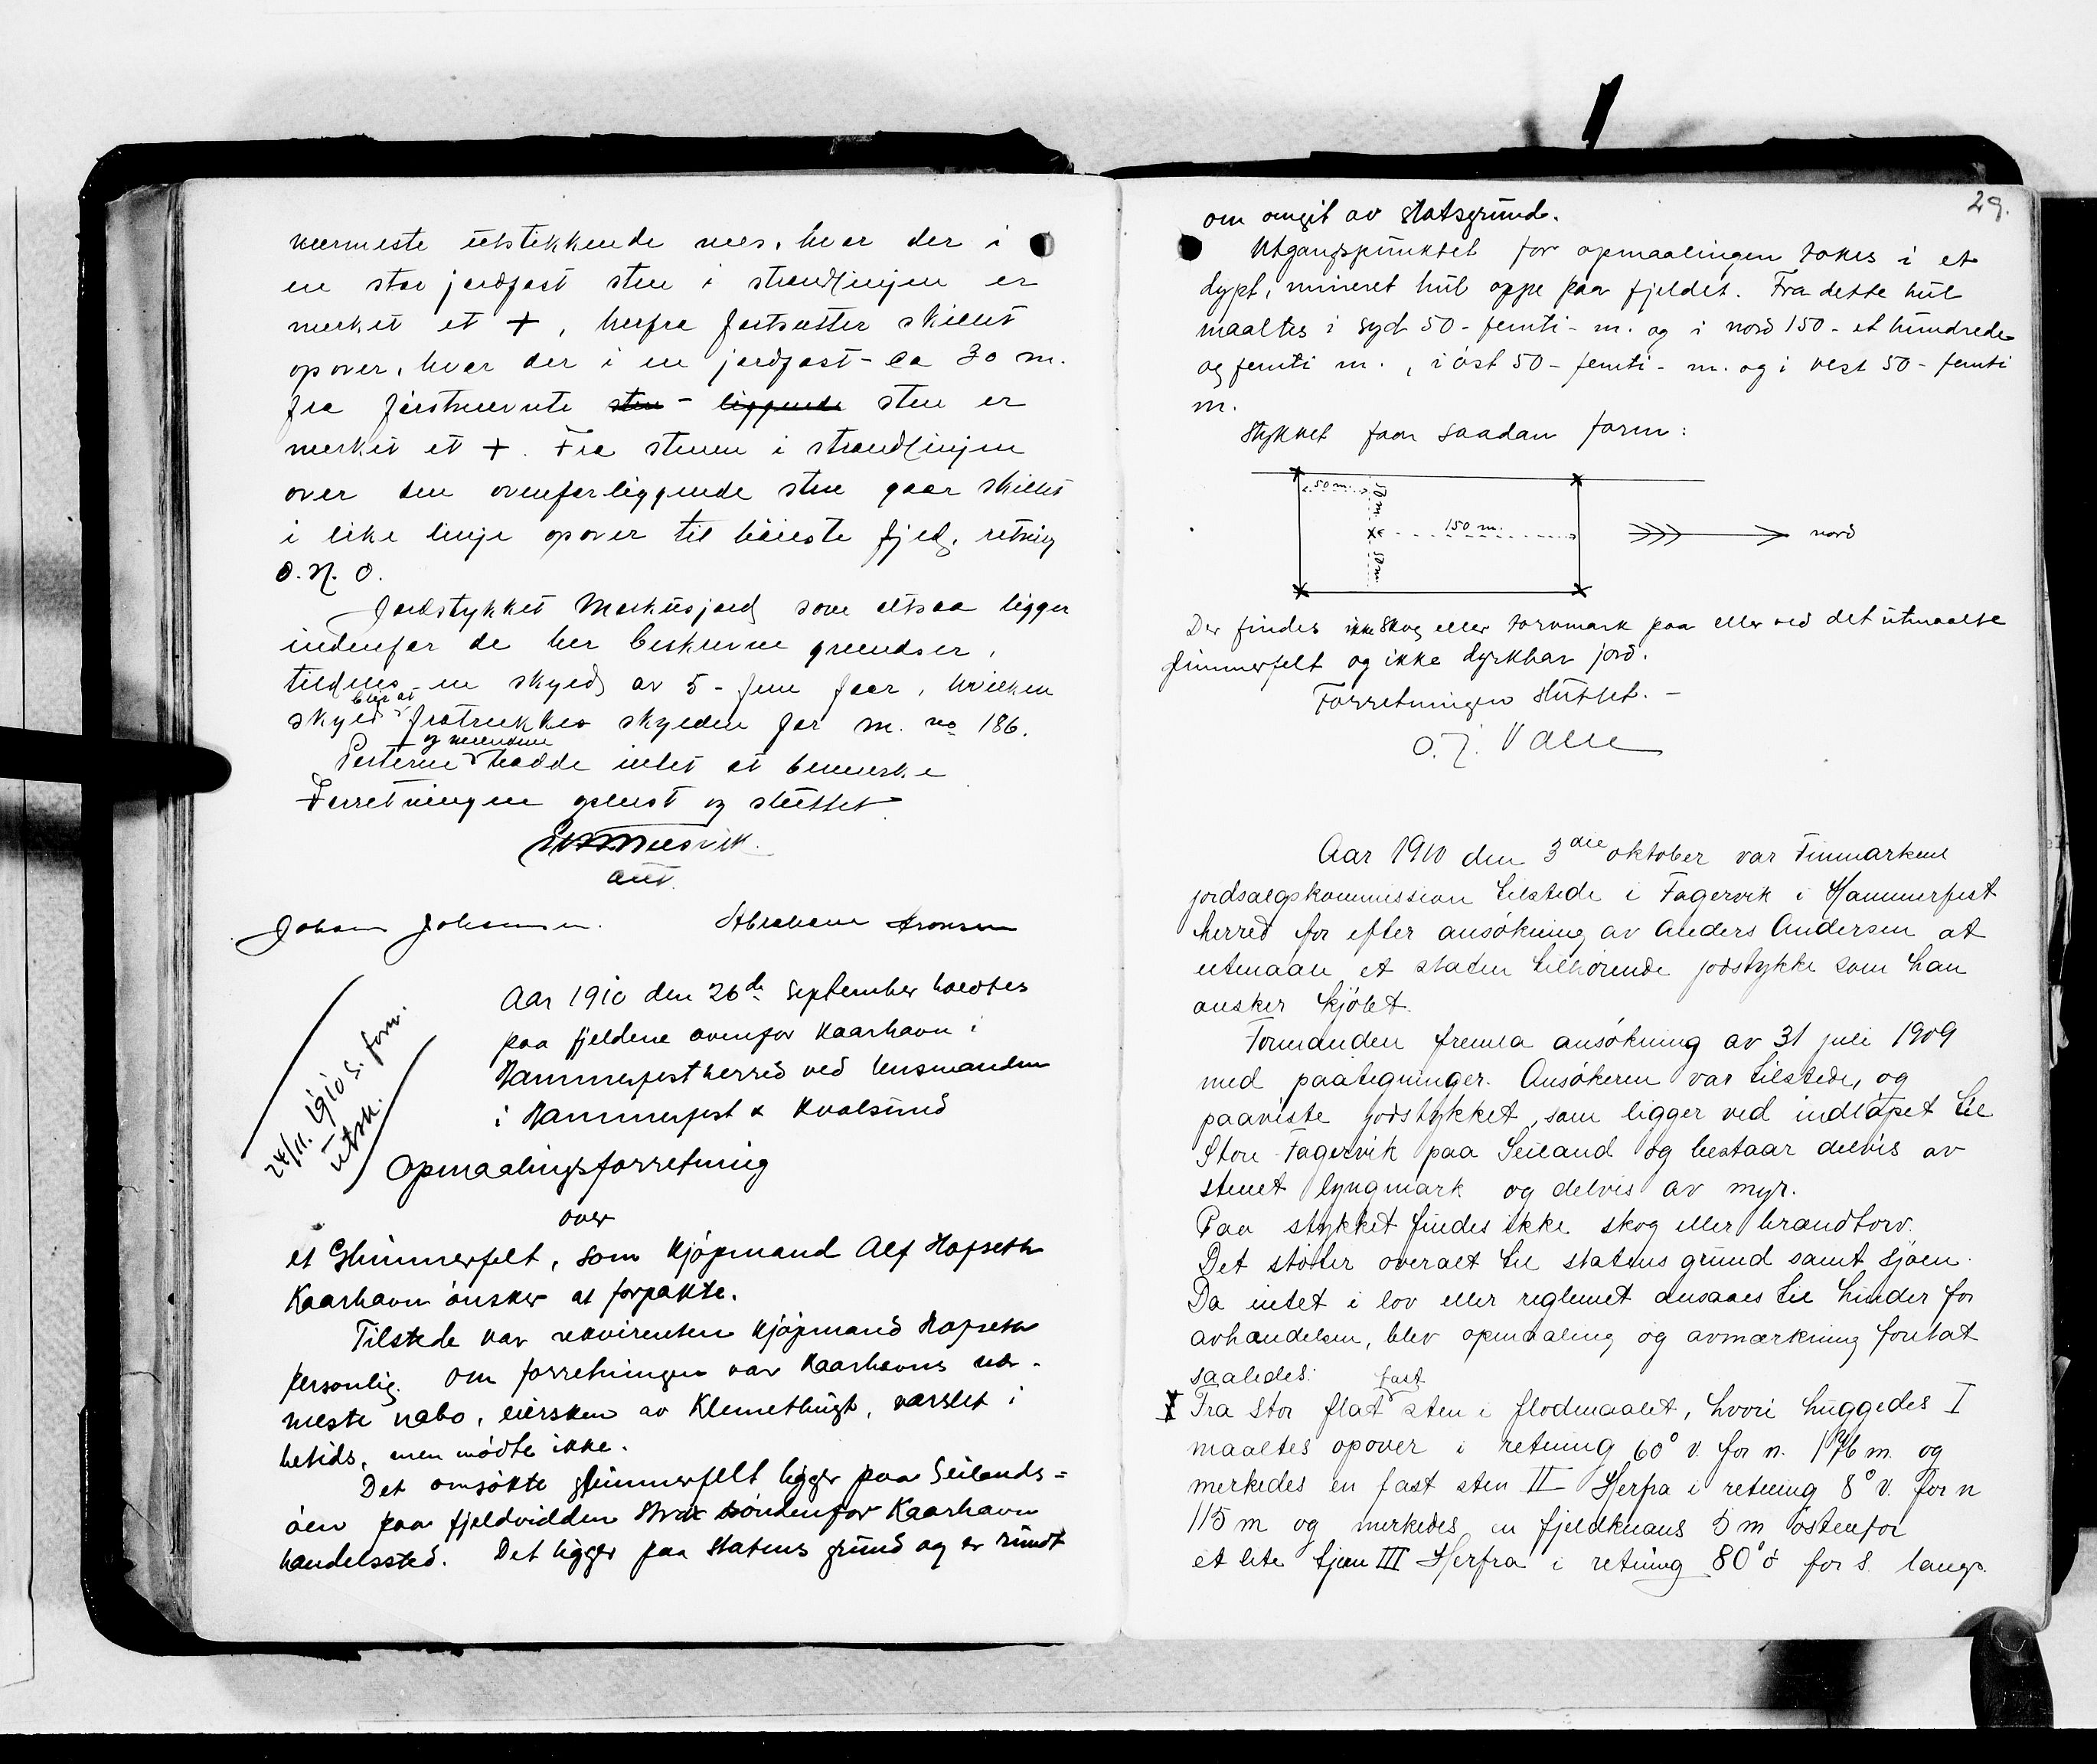 nærmeste utstikkende næs, hvor der i
en stor jordfast sten i strandlinjen er
merket et +, herfra fortsætter skillet
opover, hvor der i en jordfast - ca 30 m.
fra førstnevnte sten - liggende sten er
merket et +. Fra stenen i strandlinjen
over den ovenforliggende sten gaar skillet
i like linje opover til høieste fjeld, retning
O. N. O.
Jordstykket Markusjord som altsaa ligger
indenfor de her beskrevne grændser,
tildeles en skyld av 5 - fem øer, hvilken
blir at
skyld fratrækkes skylden for m. no 186.
og mændene
Parterne hadde intet at bemerke
Forretningen oplæst og sluttet
aut.
Johan Johansen. Abraham Aronsen
Aar 1910 den 26de september holdtes
paa fjeldene ovenfor Kaarhavn i
Hammerfest herred ved lensmanden
i Hammerfest & Kvalsund
24/11. 1910 s. fom.
utsk.
Opmaalingsforretning
over
et Glimmerfelt, som kjøpmand Alf Hopseth
Kaarhavn ønsker at forpakte.
Tilstede var rekvirenten kjøpmand Hopseth
personlig. Om forretningen var Kaarhavns nær-
meste nabo, eiersken av Klemetbugt, varslet i
betids, men mødte ikke.
Det omsøkte glimmerfelt ligger paa Seilands=
øen paa fjeldvidden strax søndenfor Kaarhavn
handelssted. Det ligger paa Statens grund og er rundt
29.
om omgit av statsgrund.
Utgangspunktet for opmaalingen tokes i et
dypt, mineret hul oppe paa fjeldet. Fra dette hul
maaltes i syd 50 - femti - m. og i nord 150 - et hundrede
og femti m., i øst 50 - femti - m. og i vest 50 - femti
m.
Stykket faar saadan form:
50 m.
50 m
150 m.
nord
50 m
Der findes ikke skog eller torvmark paa eller ved det utmaalte
glimmerfelt og ikke dyrkbar jord.
Forretningen sluttet. -
O. J. Valle
Aar 1910 den 3die oktober var Finmarkens
jordsalgskommission tilstede i Fagervik i Hammerfest
herred for efter ansøkning av Anders Andersen at
utmaale et staten tilhørende jordstykke som han
ønsker kjøbt.
Formanden fremla ansøkning av 31 juli 1909
med paategninger. Ansøkeren var tilstede, og
paaviste jordstykket, som ligger ved indløpet til
Store Fagervik paa Seiland og bestaar delvis av
stenet lyngmark og delvis av myr.
Paa stykket findes ikke skog eller brandtorv.
Det støter overalt til statens grund samt sjøen.
Da intet i lov eller reglemet ansaaes til hinder for
avhændelsen, blev opmaaling og avmærkning foretat
saaledes:
fast
I Fra stor flat sten i flodmaalet, hvori huggedes I
maaltes opover i retning 60° v. for n. 176 m. og
merkedes en fast sten II Herfra i retning 8° v. for n
115 m og merkedes en fjeldknaus 5 m østenfor
et lite tjern III Herfra i retning 80° ø for s. langs